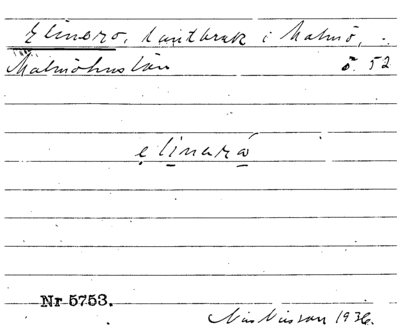 Elinero, lantbruk i Malmö,
Malmöhus län s. 52
elinarö
Nr 5753.
Nils Nilsson 1936.